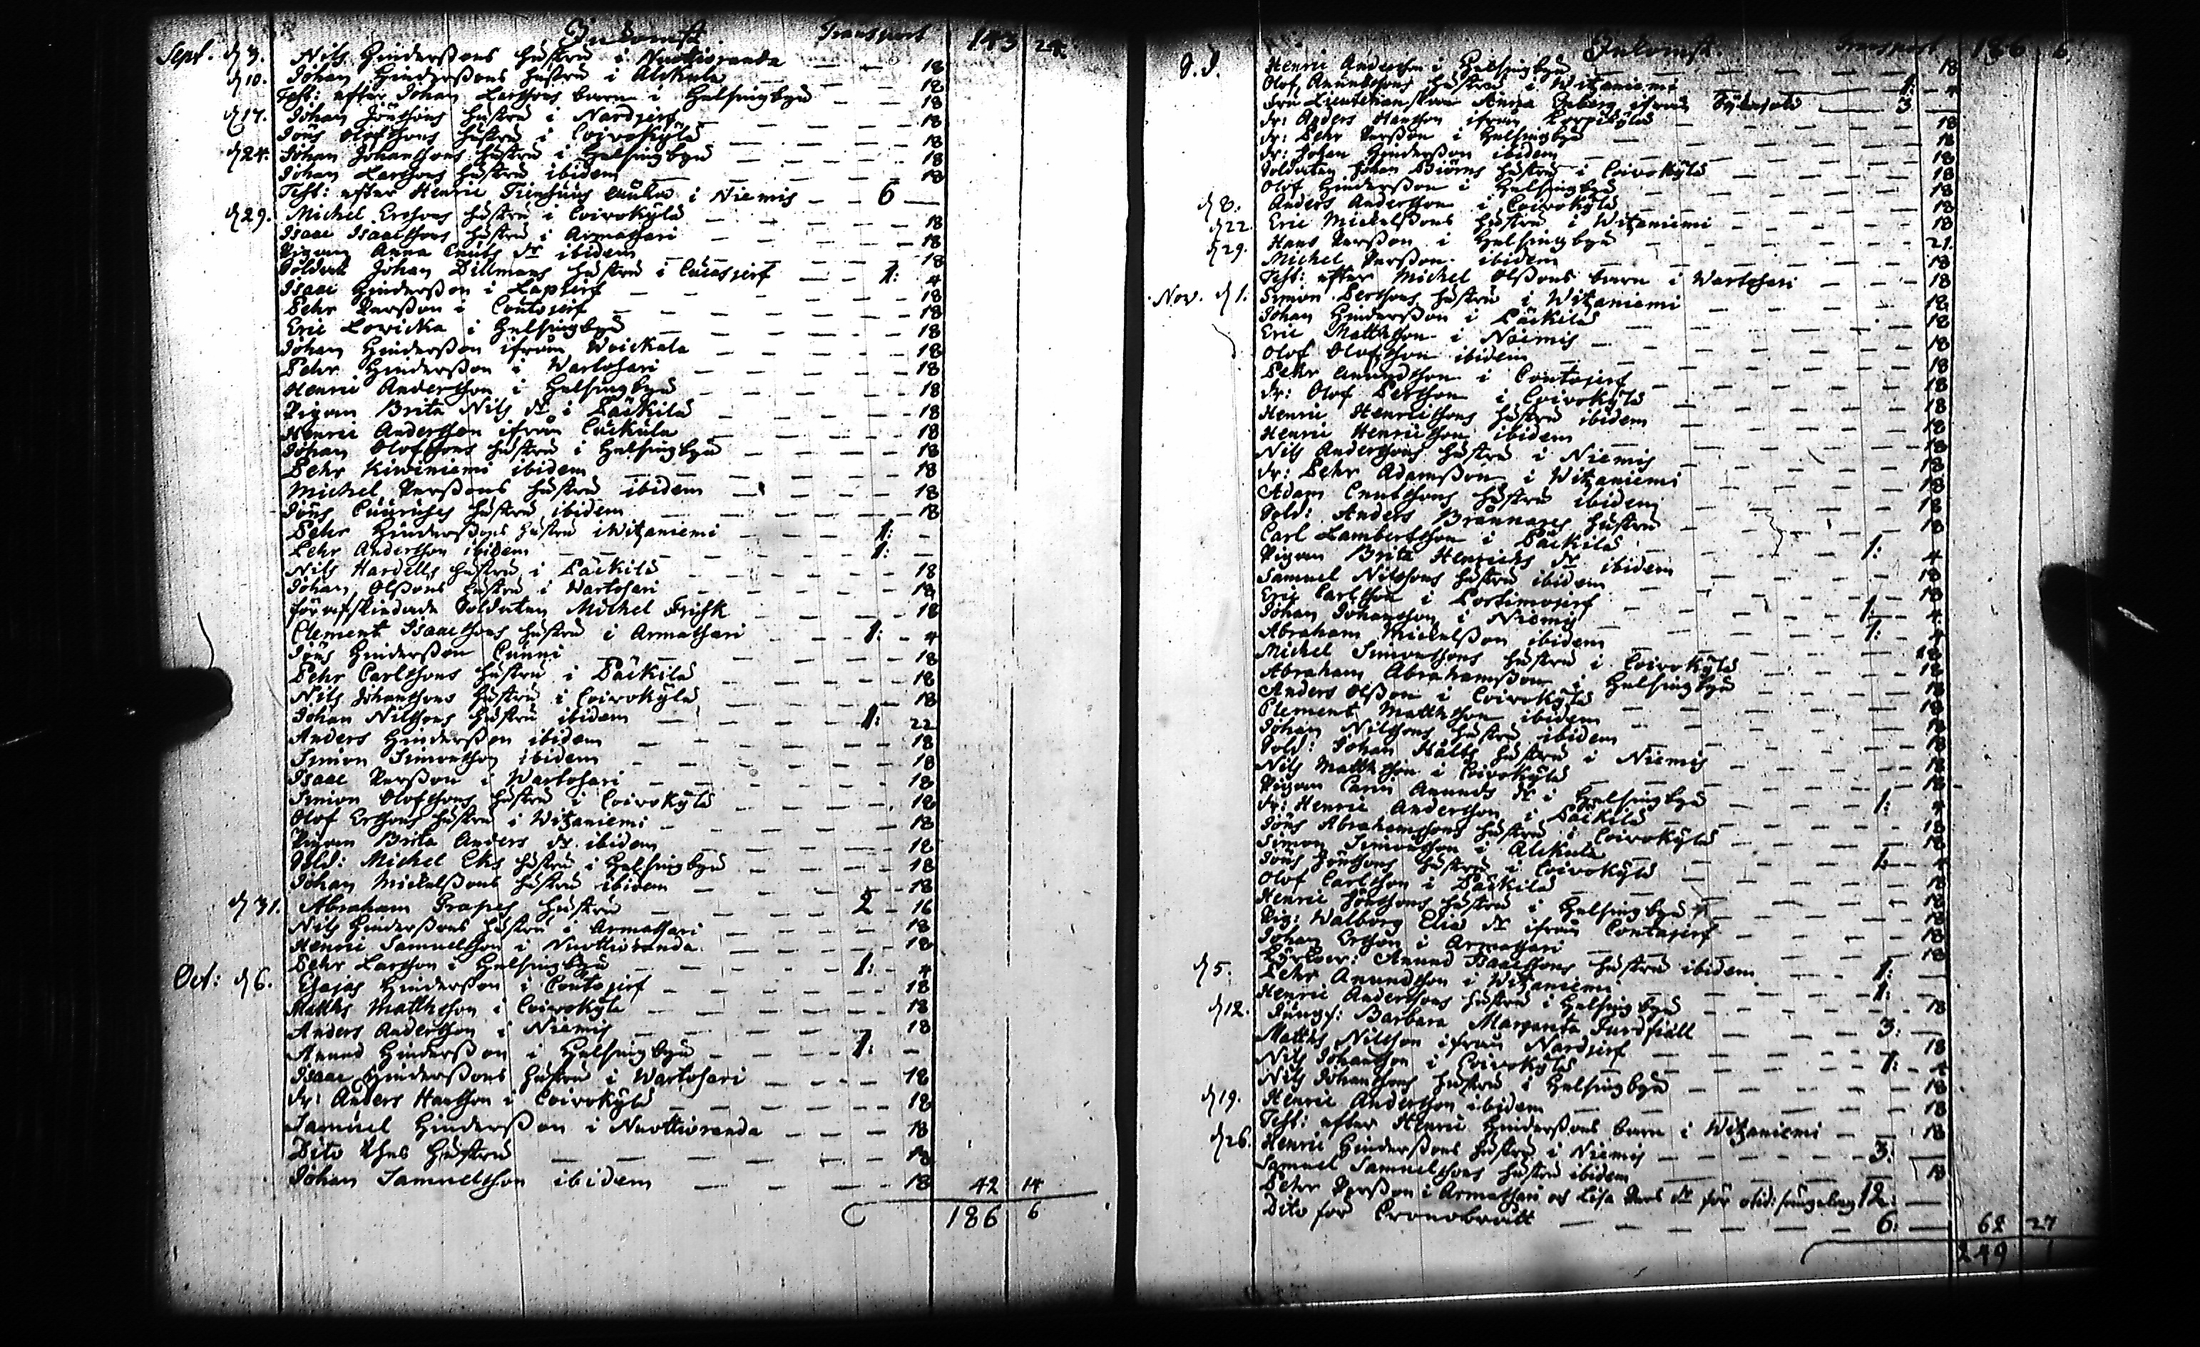 Inkomst Transport 143 24.
Sept. d 3. Nils Hinderßons hustru i Nuottioranda — — 18
d 10. Johan Hinderßons hustru i Alckula — — 18
Test: efter Johan Larssons barn i Helsingbyn — — 18
d 17. Johan Jönssons hustru i Nardjerf — — 18
Jöns Olofssons hustru i Coivokylä — — 18
d 24. Johan Johanssons hustru i Helsingbyn — — 18
Johan Larssons hustru ibidem — — 18
Test: efter Henric i Niemis — — 6 —
d 29. Michel Ersons hustru i Coivokylä — — 18
Isaac Isaacssons hustru i Armassari — — 18
Pigan Anna Cnuts dr ibidem — — 18
Soldat Johan Dillmans hustru i Cuusjerf — — 1: 4
Isaac Hinderßon i — — 18
Pehr Perßon i Contojerf — — 18
Eric Lovicka i Helsingbyn — — 18
Johan Hinderßon ifrån Woickala — — 18
Pehr Hinderßon i Wartosari — — 18
Henric Andersson i Helsingbyn — — 18
Pigan Brita Nils dr i Päckilä — — 18
Henric Andersson ifrån — — 18
Johan Olofssons hustru i Helsingbyn — — 18
Pehr Kiviniemi ibidem — — 18
Michel Perßons hustru ibidem — — 18
Jöns hustru ibidem — — 18
Pehr Hinderßons hustru i Witzaniemi — — 1: —
Pehr Andersson ibidem — — 1: —
Nils Hardells hustru i Päckilä — — 18
Johan Olßons hustru i Wartosari — — 18
för afskiedade Soldaten Michel Frisk — — 18
Clement Isaacssons hustru i Armassari — — 1: 4
Jöns Hinderßon Cunni — — 18
Pehr Carlssons hustru i Päckilä — — 18
Nils Johanssons hustru i Coivokylä — — 18
Johan Nilssons hustru ibidem — — 1: 22
Anders Hinderßon ibidem — — 18
Simon Simonsson ibidem — — 18
Isaac Perßon i Wartosari — — 18
Simon Olofssons hustru i Coivokylä — — 18
Olof Ersons hustru i Witzaniemi — — 18
Pigan Brita Anders dr. ibidem — — 18
Sold: Michel Eks hustru i Helsingbyn — — 18
Johan Mickelßons hustru ibidem — — 18
d 31. Abraham Frapes hustru — — 2 – 16
Nils Hinderßons hustru i Armassari — — 18
Henric Samuelsson i Nuottioranda — — 18
Pehr Larsson i Helsingbyn — — 1: 4
Oct: d 6. Esajas Hinderßon i Contojerf — — 18
Matths Matthsson i Coivokylä — — 18
Anders Andersson i Niemis — — 18
Anund Hinderßon i Helsingbyn — — 1: —
Isaac Hinderßons hustru i Wartosari — — 18
Dr: Anders Hansson i Coivokylä — — 18
Samuel Hinderßon i Nuottioranda — — 18
Dito dhes Hustru — — 18
Johan Samuelsson ibidem — — 18 42 14
186 6
Inkomst. Transport 186 6.
Henric Andersson i Helsingbyn — — 18
Olof Anundssons hustru i Witzaniemi — — 1: 4
Fru Lieutenanskan Anna Enberg ifrån — — 3 —
Dr: Anders Hansson ifrån Korpikylä — — 18
Dr: Pehr Perßon i Helsingbyn — — 18
Dr: Johan Hinderßon ibidem — — 18
Soldaten Johan Biörns hustru i Coivokylä — — 18
Olof Hinderßon i Helsingbyn — — 18
d 8. Anders Andersson i Coivokylä — — 18
d 22. Eric Mickelßons hustru i Witzaniemi — — 18
d 29. Hans Perßon i Helsingbyn — — 21.
Michel Perßon ibidem — — 18
Test: efter Michel Olßons barn i Wartosari — — 18
Nov. d 1. Simon Perssons hustru i Witzaniemi — — 18
Johan Hinderßon i Päckilä — — 18
Eric Matthsson i Niemis — — 18
Olof Olofsson ibidem — — 18
Pehr Anundsson i Contojerf — — 18
Dr: Olof Persson i Coivokylä — — 18
Henric Henricssons hustru ibidem — — 18
Henric Henricsson ibidem — — 18
Nils Anderssons hustru i Niemis — — 18
Dr: Pehr Adamsßon i Witzaniemi — — 18
Adam Cnutssons hustru ibidem — — 18
Sold: Anders Brännares hustru — — 18
Carl Lambertsson i Päckilä — — 1: 4
Pigan Brita Henrichs dr ibidem — — 18
Samuel Nilssons hustru ibidem — — 18
Eric Carlsson i Portimojerf — — 1: 4
Johan Johansson i Niemis — — 1: 4
Abraham Mickelßon ibidem — — 18
Michel Simonssons hustru i Coivokylä — — 18
Abraham Abrahamsßon i Helsingbyn — — 18
Anders Olßon i Coivokylä — — 18
Clement Matthsson ibidem — — 18
Johan Nilssons hustru ibidem — — 18
Sold: Johan Hälls hustru i Niemis — — 18
Nils Matthsson i Coivokylä — — 18
Pigan Carin Anunds dr i Helsingbyn — — 1: 4
Dr: Henric Andersson i Päckilä — — 18
Jöns Abrahamssons hustru i Coivokylä — — 18
Simon Simonsson i Alckula — — 1: 4
Jöns Jönssons hustru i Coivokylä — — 18
Olof Carlsson i Päckilä — — 18
Henric Jönssons hustru i Helsingbyn — — 18
Pig: Walborg Elia dr ifrån Contojerf — — 18
Johan Ersson i Armassari — — 18
Anund Isaacssons hustru ibidem — — 1: —
d 5. Pehr Anundsson i Witzaniemi — — 1: —
Henric Anderssons hustru i Helsingbyn — — 18
d 12. Jungf: Barbara Margareta — — 3: —
Matths Nilsson ifrån Nardjerf — — 18
Nils Johansson i Coivokylä — — 1: 4
Nils Johanssons hustru i Helsingbyn — — 18
d 19. Henric Andersson ibidem — — 18
Test: efter Henric Hinderßons barn i Witzaniemi — — 18
d 26. Henric Hinderßons hustru i Niemis — — 3: —
Samuel Samuelssons hustru ibidem — — 18
Pehr Perßon i Armassari och Lisa Pers dr för otid: sängelag 12: —
Dito för Cronobrott — — 6: — 62 27
249 1